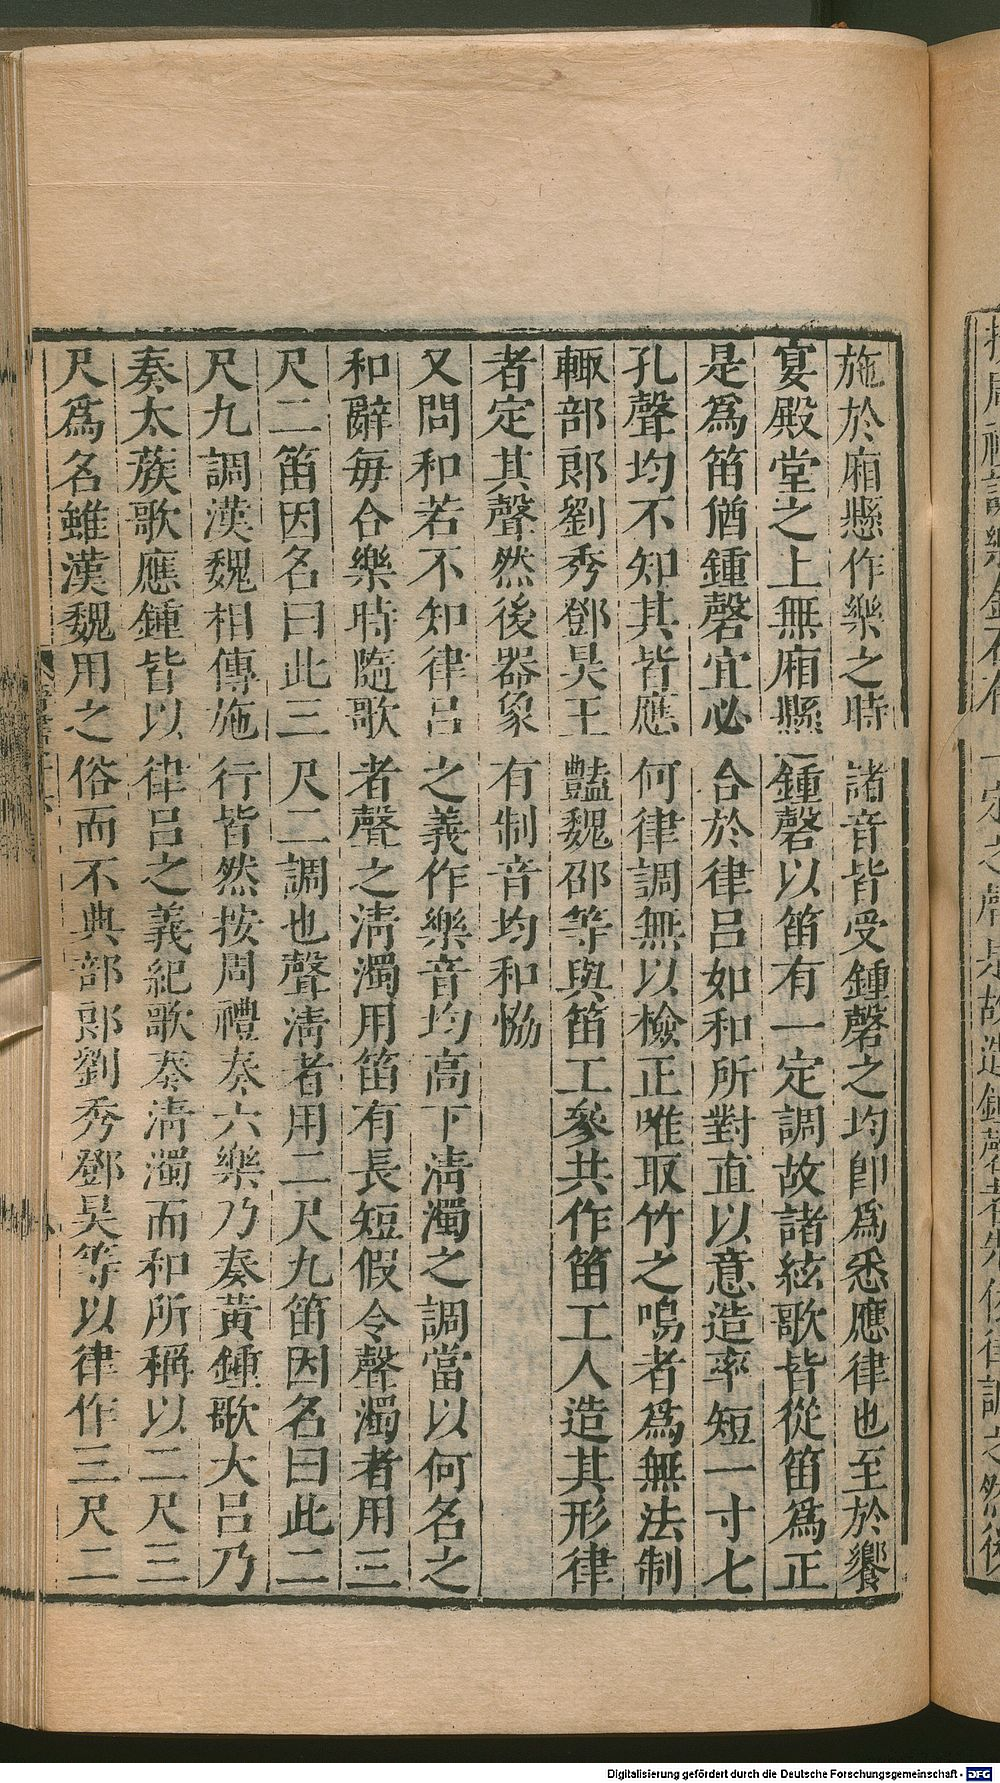 施於廂懸作樂之時諸音皆受鍾磬之均即爲悉應律也至於饗
宴殿堂之上無廂懸鍾磬以笛有一定調故諸絃歌皆從笛爲正
是爲笛猶鍾磬宜必合於律呂如和所對直以意造率短一寸七
孔聲均不知其皆應何律調無以檢正唯取竹之鳴者爲無法制
輙部郎劉秀鄧昊王豔魏邵等與笛工參共作笛工人造其形律
者定其聲然後器象有制音均和恊
又問和若不知律呂之義作樂音均高下淸濁之調當以何名之
和辭每合樂時隨歌者聲之淸濁用笛有長短假令聲濁者用三
尺二笛因名曰此三尺二調也聲淸者用二尺九笛因名曰此二
尺九調漢魏相傳施行皆然按周禮奏六樂乃奏黃鍾歌大呂乃
奏太蔟歌應鍾皆以律呂之義紀歌奏淸濁而和所稱以二尺三
尺爲名雖漢魏用之俗而不典部郎劉秀鄧昊等以律作三尺二
Digitalisierung gefördert durch die Deutsche Forschungsgemeinschaft - DFG